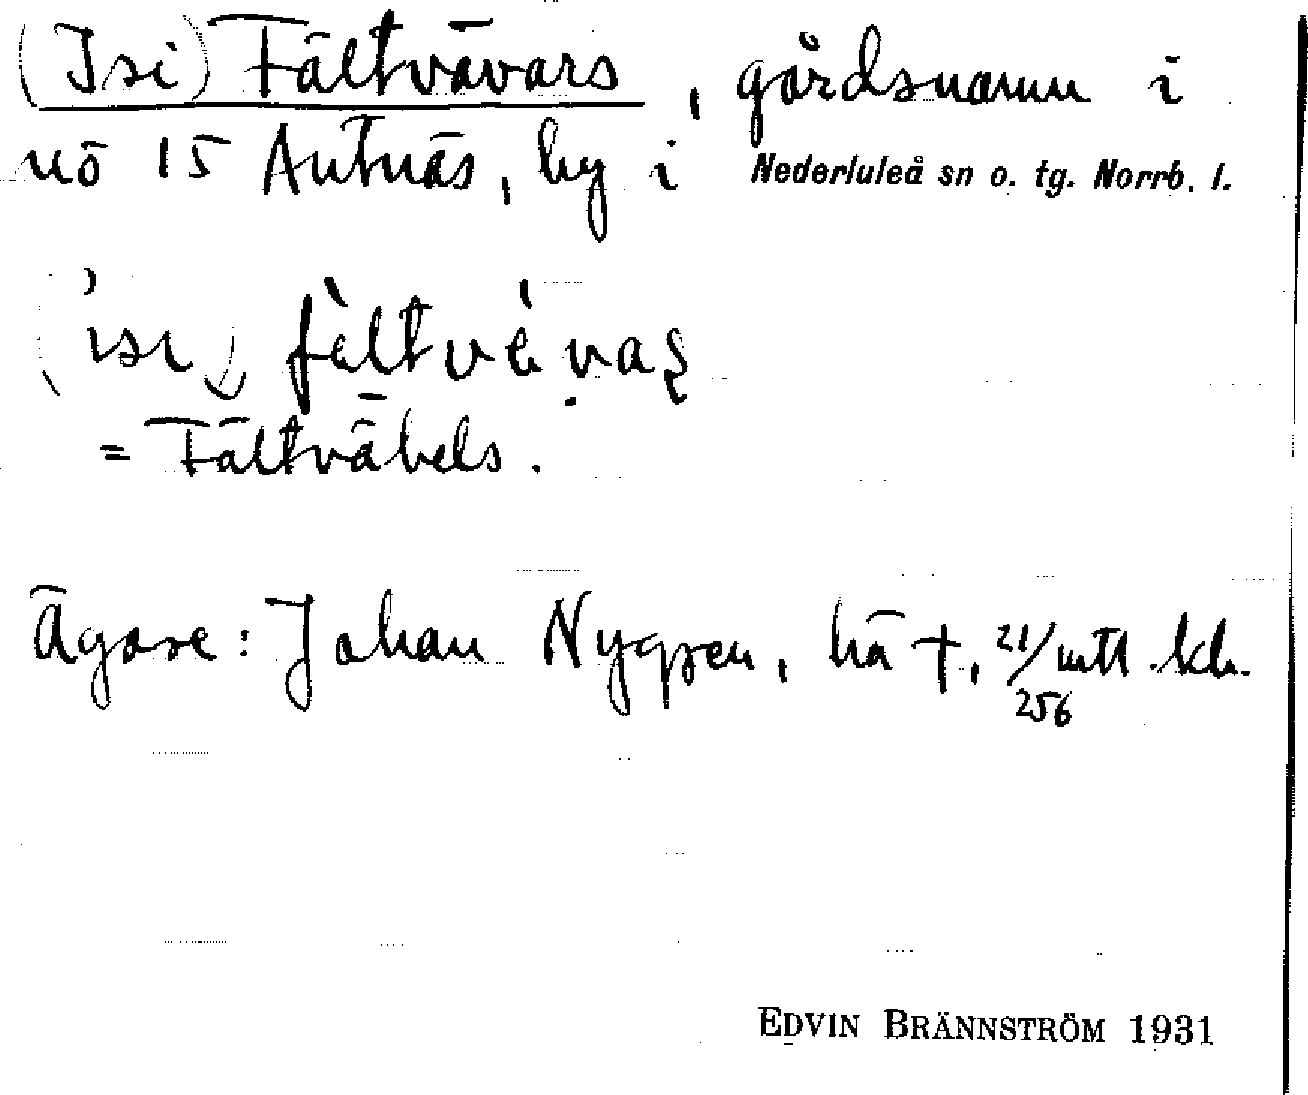 (Isi) Fältvävars, gårdsnamn i
nö 15 Antnäs, by i Nederluleå sn o. tg. Norrb. l.
(ısı) fèltvévas
= Fältväbels.
Ägare: Johan Nygren, hä †, 21/256 mtl kr.
EDVIN BRÄNNSTRÖM 1931